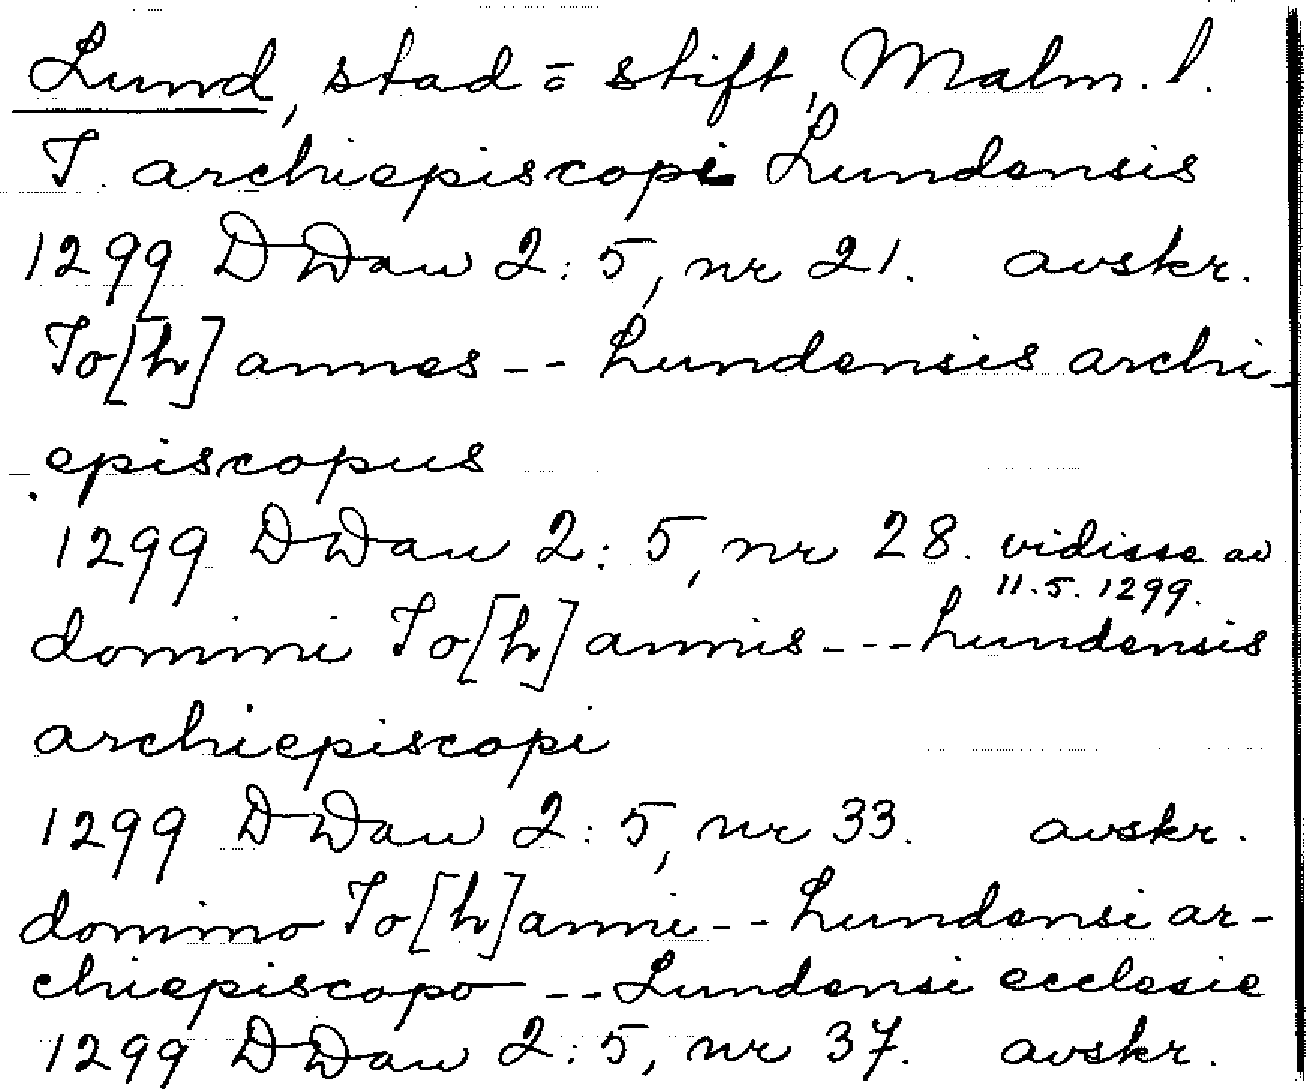 Lund, stad = stift, Malm. l.
I. archiepiscopi Lundensis
1299 DDan 2:5, nr 21. avskr.
Io[h]annes -- Lundensis archi-
episcopus
1299 DDan 2:5, nr 28. vidisse av
11.5.1299.
domini Io[h]annis --- Lundensis
archiepiscopi
1299 DDan 2:5, nr 33. avskr.
domino Io[h]anni -- Lundensi ar-
chiepiscopo -- Lundensi ecclesie
1299 DDan 2:5, nr 37. avskr.